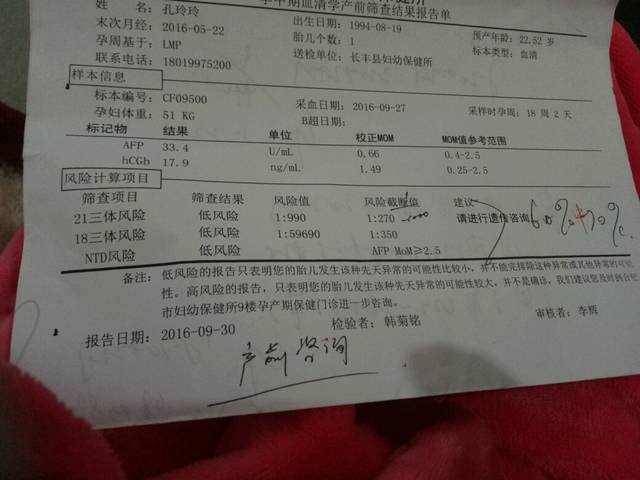 孕中期血清学产前筛查结果报告单
姓 名: 孔玲玲 出生日期: 1994-08-19 预产年龄: 22.52 岁
末次月经: 2016-05-22 胎儿个数: 1 标本类型: 血清
孕周基于: LMP 送检单位: 长丰县妇幼保健所
联系电话: 18019975200
样本信息
标本编号: CF09500 采血日期: 2016-09-27 采样时孕周: 18 周 2 天
孕妇体重: 51 KG B超日期:
标记物 结果 单位 校正MOM MOM值参考范围
AFP 33.4 U/mL 0.66 0.4-2.5
hCGb 17.9 ng/mL 1.49 0.25-2.5
风险计算项目
筛查项目 筛查结果 风险值 风险截断值 建议
21三体风险 低风险 1:990 1:270 请进行遗传咨询
18三体风险 低风险 1:59690 1:350
NTD风险 低风险 AFP MoM≥2.5
备注: 低风险的报告只表明您的胎儿发生该种先天异常的可能性比较小,并不能完全排除这种异常或其他异常的可能
性。高风险的报告,只表明您的胎儿发生该种先天异常的可能性较大,并不是确诊,我们建议您及时到合肥
市妇幼保健所9楼孕产期保健门诊进一步咨询。
报告日期: 2016-09-30 检验者: 韩菊铭 审核者: 李辉
产前咨询